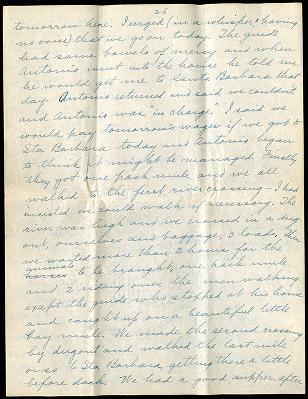 26
tomorrow here. I urged (in a whisper! having
no voice) that we go on today. The guide
had some bowels of mercy and when
Antonio went into the house he told me
he would get me to Santa Barbara that
day. Antonio returned and said we couldn't
and Antonio was "in charge." I said we
would pay tomorrow's wages if we got to
Sta Barbara today and Antonio began
to think it might be managed. Finally
they got one pack mule and we all
walked to the first river crossing – I had
insisted we could walk if necessary. The
river was high and we crossed in a dug
out, ourselves and baggage, 3 loads. Then
we waited more than 2 hours for the
animals to be brought, one pack mule
and 2 riding ones, the men walking
except the guide who stopped at his home
and caught up on a beautiful little
bay mule. We made the second crossing
by dugout and walked the last mile
or so to Sta Barbara, getting there a little
before dark. We had a good supper, after